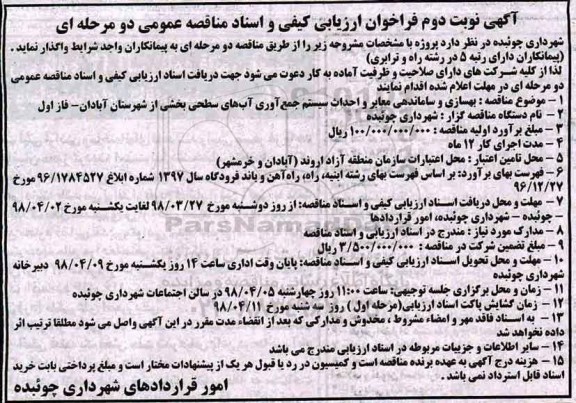 آگهی نوبت دوم فراخوان ارزیابی کیفی و اسناد مناقصه عمومی دو مرحله ای
شهرداری چوئبده در نظر دارد پروژه با مشخصات مشروحه زیر را از طریق مناقصه دو مرحله ای به پیمانکاران واجد شرایط واگذار نماید .
(پیمانکاران دارای رتبه ۵ در رشته راه و ترابری)
لذا از کلیه شرکت های دارای صلاحیت و ظرفیت آماده به کار دعوت می شود جهت دریافت اسناد ارزیابی کیفی و اسناد مناقصه عمومی
دو مرحله ای در مهلت اعلام شده اقدام نمایند
۱ - موضوع مناقصه : بهسازی و ساماندهی معابر و احداث سیستم جمع‌آوری آب‌های سطحی بخشی از شهرستان آبادان- فاز اول
۲ - نام دستگاه مناقصه گزار : شهرداری چوئبده
۳ - مبلغ برآورد اولیه مناقصه : ۱۰۰/۰۰۰/۰۰۰/۰۰۰ ریال
۴ - مدت اجرای کار ۱۲ ماه
۵ - محل تامین اعتبار : محل اعتبارات سازمان منطقه آزاد اروند (آبادان و خرمشهر)
۶ - فهرست بهای برآورد: بر اساس فهرست بهای رشته ابنیه، راه، راه‌آهن و باند فرودگاه سال ۱۳۹۷ شماره ابلاغ ۹۶/۱۷۸۴۵۲۷ مورخ
۹۶/۱۲/۲۷
۷ - مهلت و محل دریافت اسناد ارزیابی کیفی و اسناد مناقصه: از روز دوشنبه مورخ ۹۸/۰۳/۲۷ لغایت یکشنبه مورخ ۹۸/۰۴/۰۲
- چوئبده - شهرداری چوئبده، امور قراردادها
۸ - مدارک مورد نیاز : مندرج در اسناد ارزیابی و اسناد مناقصه
۹ - مبلغ تضمین شرکت در مناقصه : ۳/۵۰۰/۰۰۰/۰۰۰ ریال
۱۰ - مهلت و محل تحویل اسناد ارزیابی کیفی و اسناد مناقصه: پایان وقت اداری ساعت ۱۴ روز یکشنبه مورخ ۹۸/۰۴/۰۹ دبیرخانه
شهرداری چوئبده
۱۱ - زمان و محل برگزاری جلسه توجیهی: ساعت ۱۱:۰۰ روز چهارشنبه ۹۸/۰۴/۰۵ در سالن اجتماعات شهرداری چوئبده
۱۲ - زمان گشایش پاکت اسناد ارزیابی(مرحله اول ) روز سه شنبه مورخ ۹۸/۰۴/۱۱
۱۳ - به اسناد فاقد مهر و امضاء مشروط ، مخدوش و مدارکی که بعد از انقضاء مدت مقرر در این آگهی واصل می شود مطلقا ترتیب اثر
داده نخواهد شد
۱۴ - سایر اطلاعات و جزییات مربوطه در اسناد ارزیابی مندرج می باشد
۱۵ - هزینه درج آگهی به عهده برنده مناقصه است و کمیسیون در رد یا قبول هر یک از پیشنهادات مختار است و مبلغ پرداختی بابت خرید
اسناد قابل استرداد نمی باشد .
امور قراردادهای شهرداری چوئبده